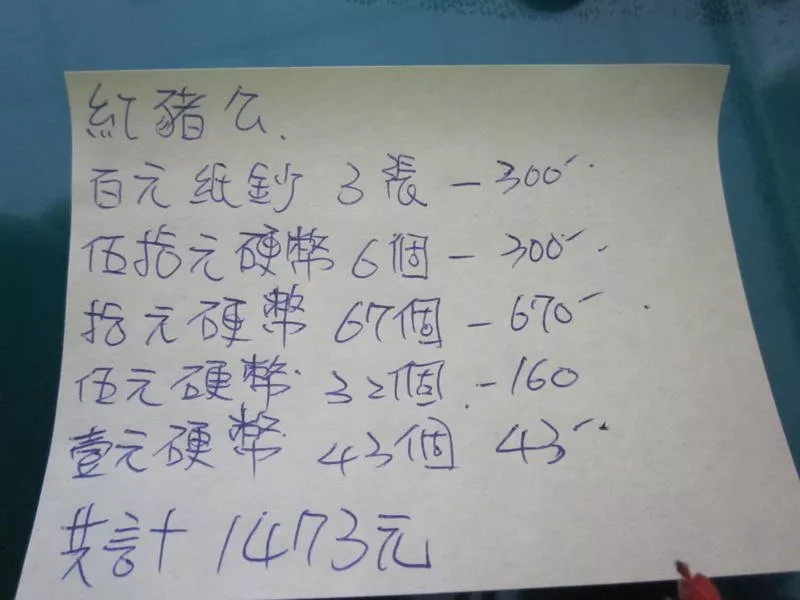 紅豬公.
百元紙鈔 3張 - 300
伍拾元硬幣 6個 - 300
拾元硬幣 67個 - 670
伍元硬幣 32個 - 160
壹元硬幣 43個 43
共計 1473元